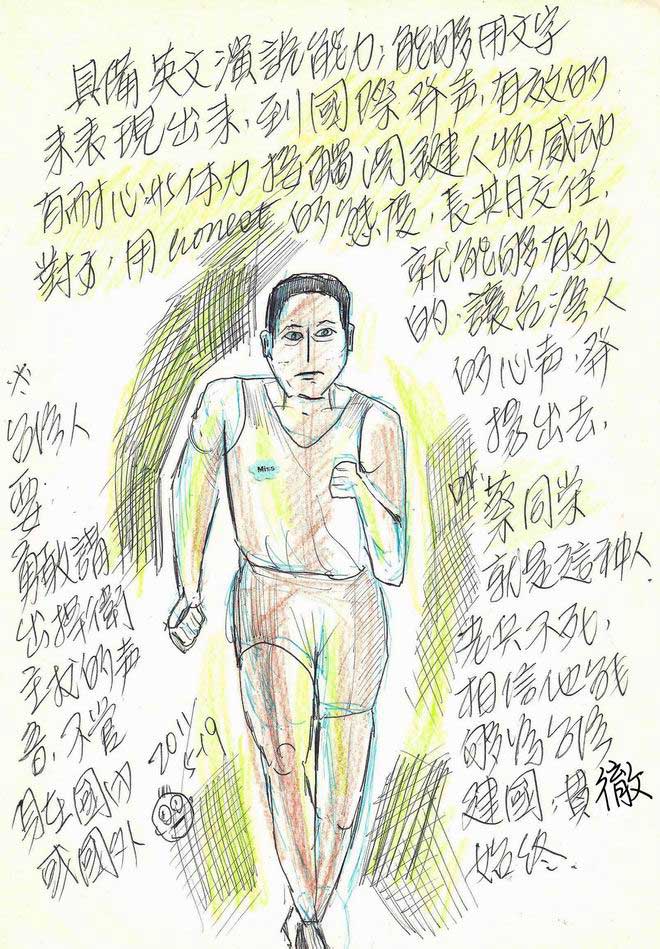 具備英文演說能力,能够用文字
来表現出来,到國際發声,有效的
有耐心 体力 接觸関鍵人物,感动
對方,用 honest 的態度,長期交往,
就能够有效
的,讓台湾人
的心声,發
揚出去,
蔡同荣
就是這种人
老兵不死,
相信他能
够為台湾
建國,貫徹
始终.
※
台湾人
要
勇敢講
出捍衛
主权的声
音,不管
身在國内
或國外
2011
5-19
Miss